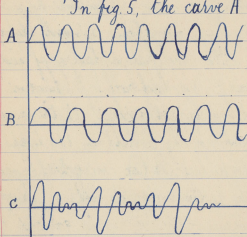 In fig. 5, the curve A
A
B
C